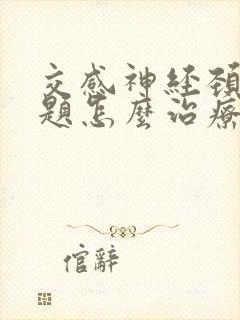 交感神经颈
题怎麼治療
倌辭